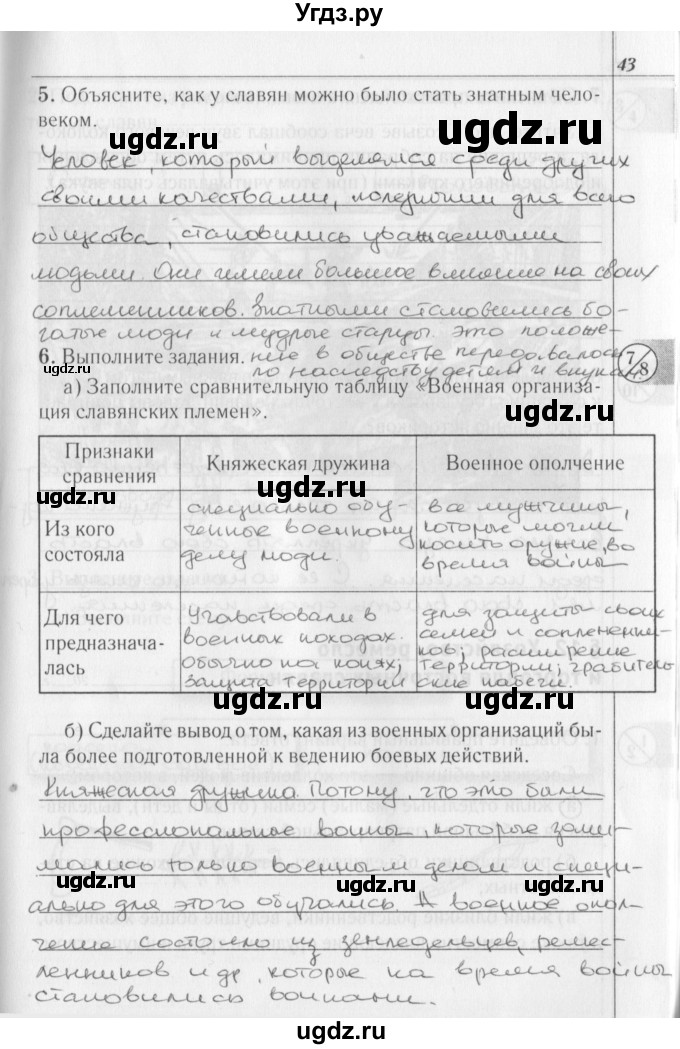 Угдз.ру
43
5. Объясните, как у славян можно было стать знатным чело-
веком.
Человек, который выделялся среди других
своими качествами, полезными для всего
общества, становились уважаемыми
людьми. Они имели большое влияние на своих
соплеменников. Знатными становились бо-
гатые люди и мудрые старцы. Это положе-
6. Выполните задания. ние в обществе передовалось
по наследству детям и внукам.
7/8
а) Заполните сравнительную таблицу «Военная организа-
ция славянских племен».
Признаки сравнения
Княжеская дружина
Военное ополчение
Из кого состояла
специально обу-
ченные военному
делу люди.
все мужчины,
которые могли
носить оружие, во
время войны
Для чего предназнача-лась
Учавствовали в
военных походах.
обычно на конях;
защита территории
для защиты своих
семей и соплеменни-
ков; расширение
территории; грабитель-
ские набеги.
б) Сделайте вывод о том, какая из военных организаций бы-
ла более подготовленной к ведению боевых действий.
Княжеская дружина. Потому, что это были
профессиональные воины, которые зани-
мались только военным делом и специ-
ально для этого обучались. А военное опол-
чение состояло из земледельцев, ремес-
ленников и др, которые на время войны
становились воинами.
ugdz.ru
ugdz.ru
ugdz.ru
ugdz.ru
ugdz.ru
ugdz.ru
ugdz.ru
ugdz.ru
ugdz.ru
ugdz.ru
ugdz.ru
ugdz.ru
ugdz.ru